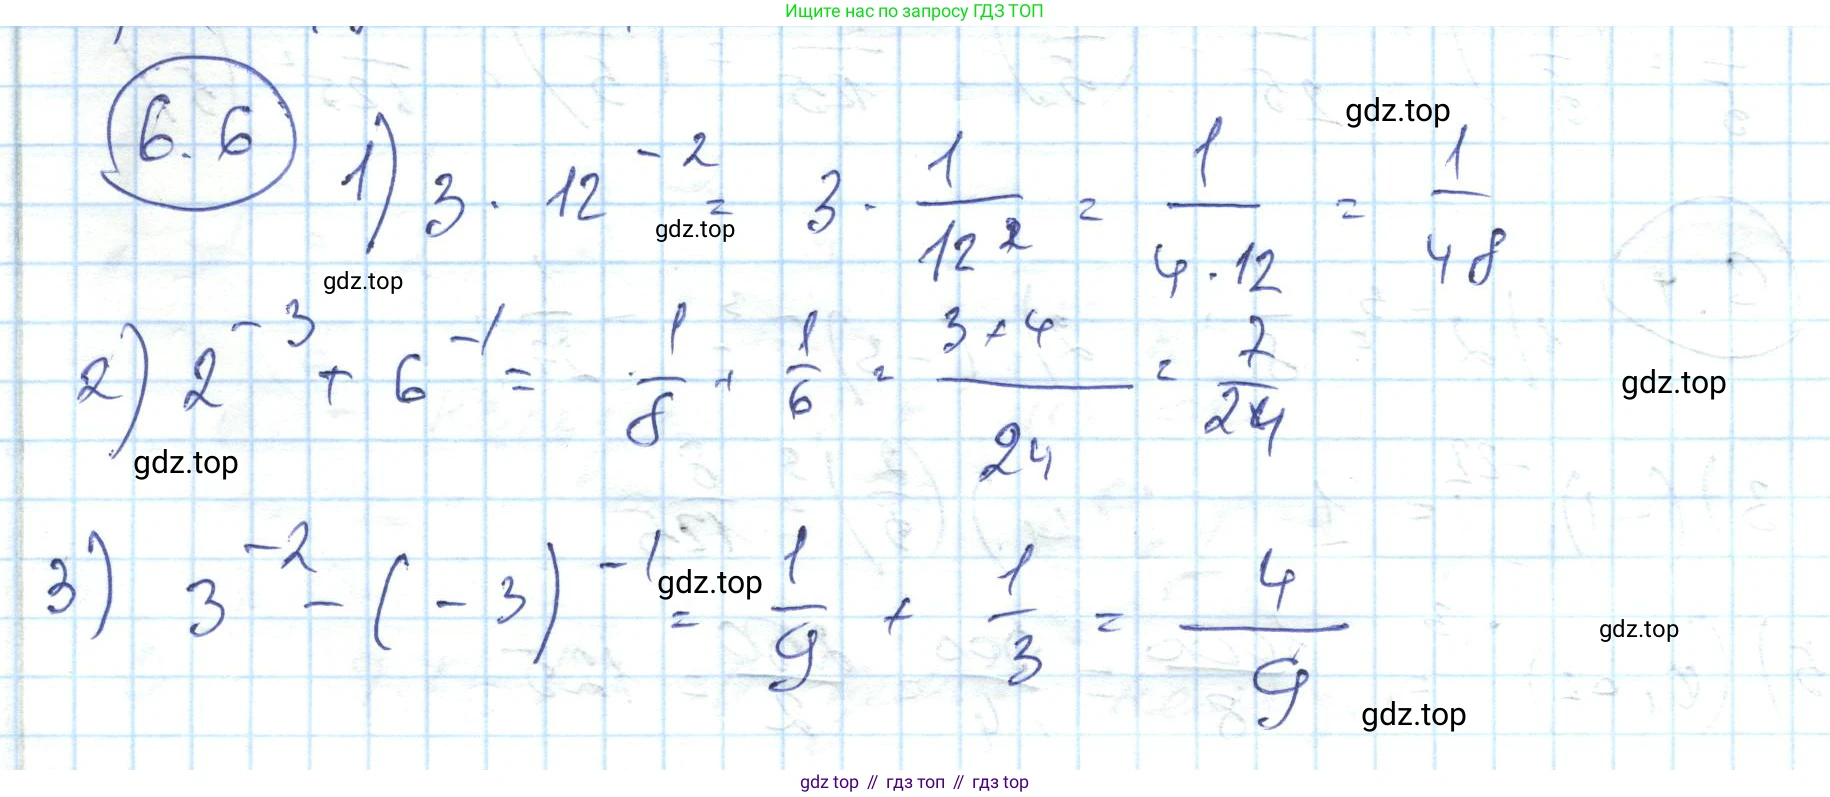 Ищите нас по запросу ГДЗ ТОП
6.6 1) 3 · 12^{-2} = 3 · \frac{1}{12^2} = \frac{1}{4 · 12} = \frac{1}{48}
gdz.top
gdz.top
gdz.top
2) 2^{-3} + 6^{-1} = \frac{1}{8} + \frac{1}{6} = \frac{3+4}{24} = \frac{7}{24}
gdz.top
gdz.top
3) 3^{-2} - (-3)^{-1} = \frac{1}{9} + \frac{1}{3} = \frac{4}{9}
gdz.top
gdz.top
gdz.top
gdz top // гдз топ // гдз top